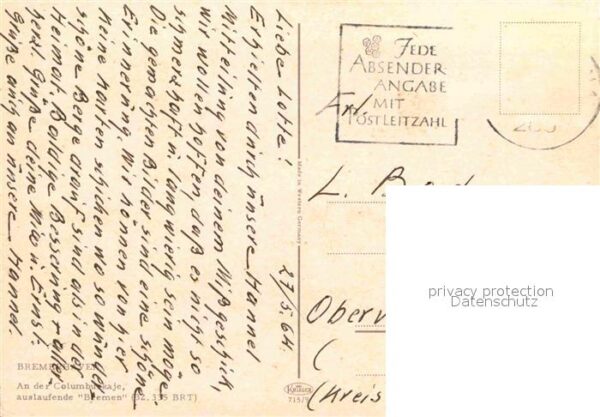 Liebe Lotte! 27.5.64.
Erhielten durch unsere Hannel
Mitteilung von deinem Mißgeschick,
wir wollen hoffen, daß es nicht so
schmerzhaft u. langwierig sein möge.
Die gemachten Bilder sind eine schöne
Erinnerung. Wir können von hier
keine Karten schicken wo so wunder
schöne Berge drauf sind als in der
Heimat. Baldige Besserung + aller
herzl. Grüße deine Mia u. Ernst.
Grüße auch an unsere Hannel.
BREMERHAVEN
An der Columbuskaje,
auslaufende "Bremen" (BZ. 335 BRT)
Made in Western Germany
JEDE
ABSENDER
ANGABE
MIT
POSTLEITZAHL
Frl.
L.
Ober
(
(Kreis
Krüger
privacy protection
Datenschutz